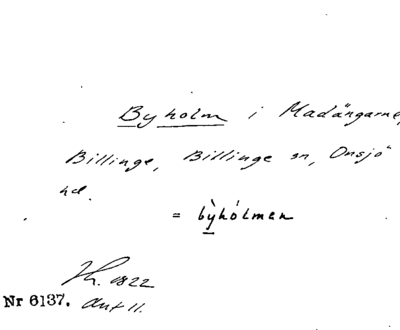 Byholm i Madängarne,
Billinge, Billinge sn, Onsjö
hd.
= bỳhólmen
1822
Nr 6137. Akt 11.